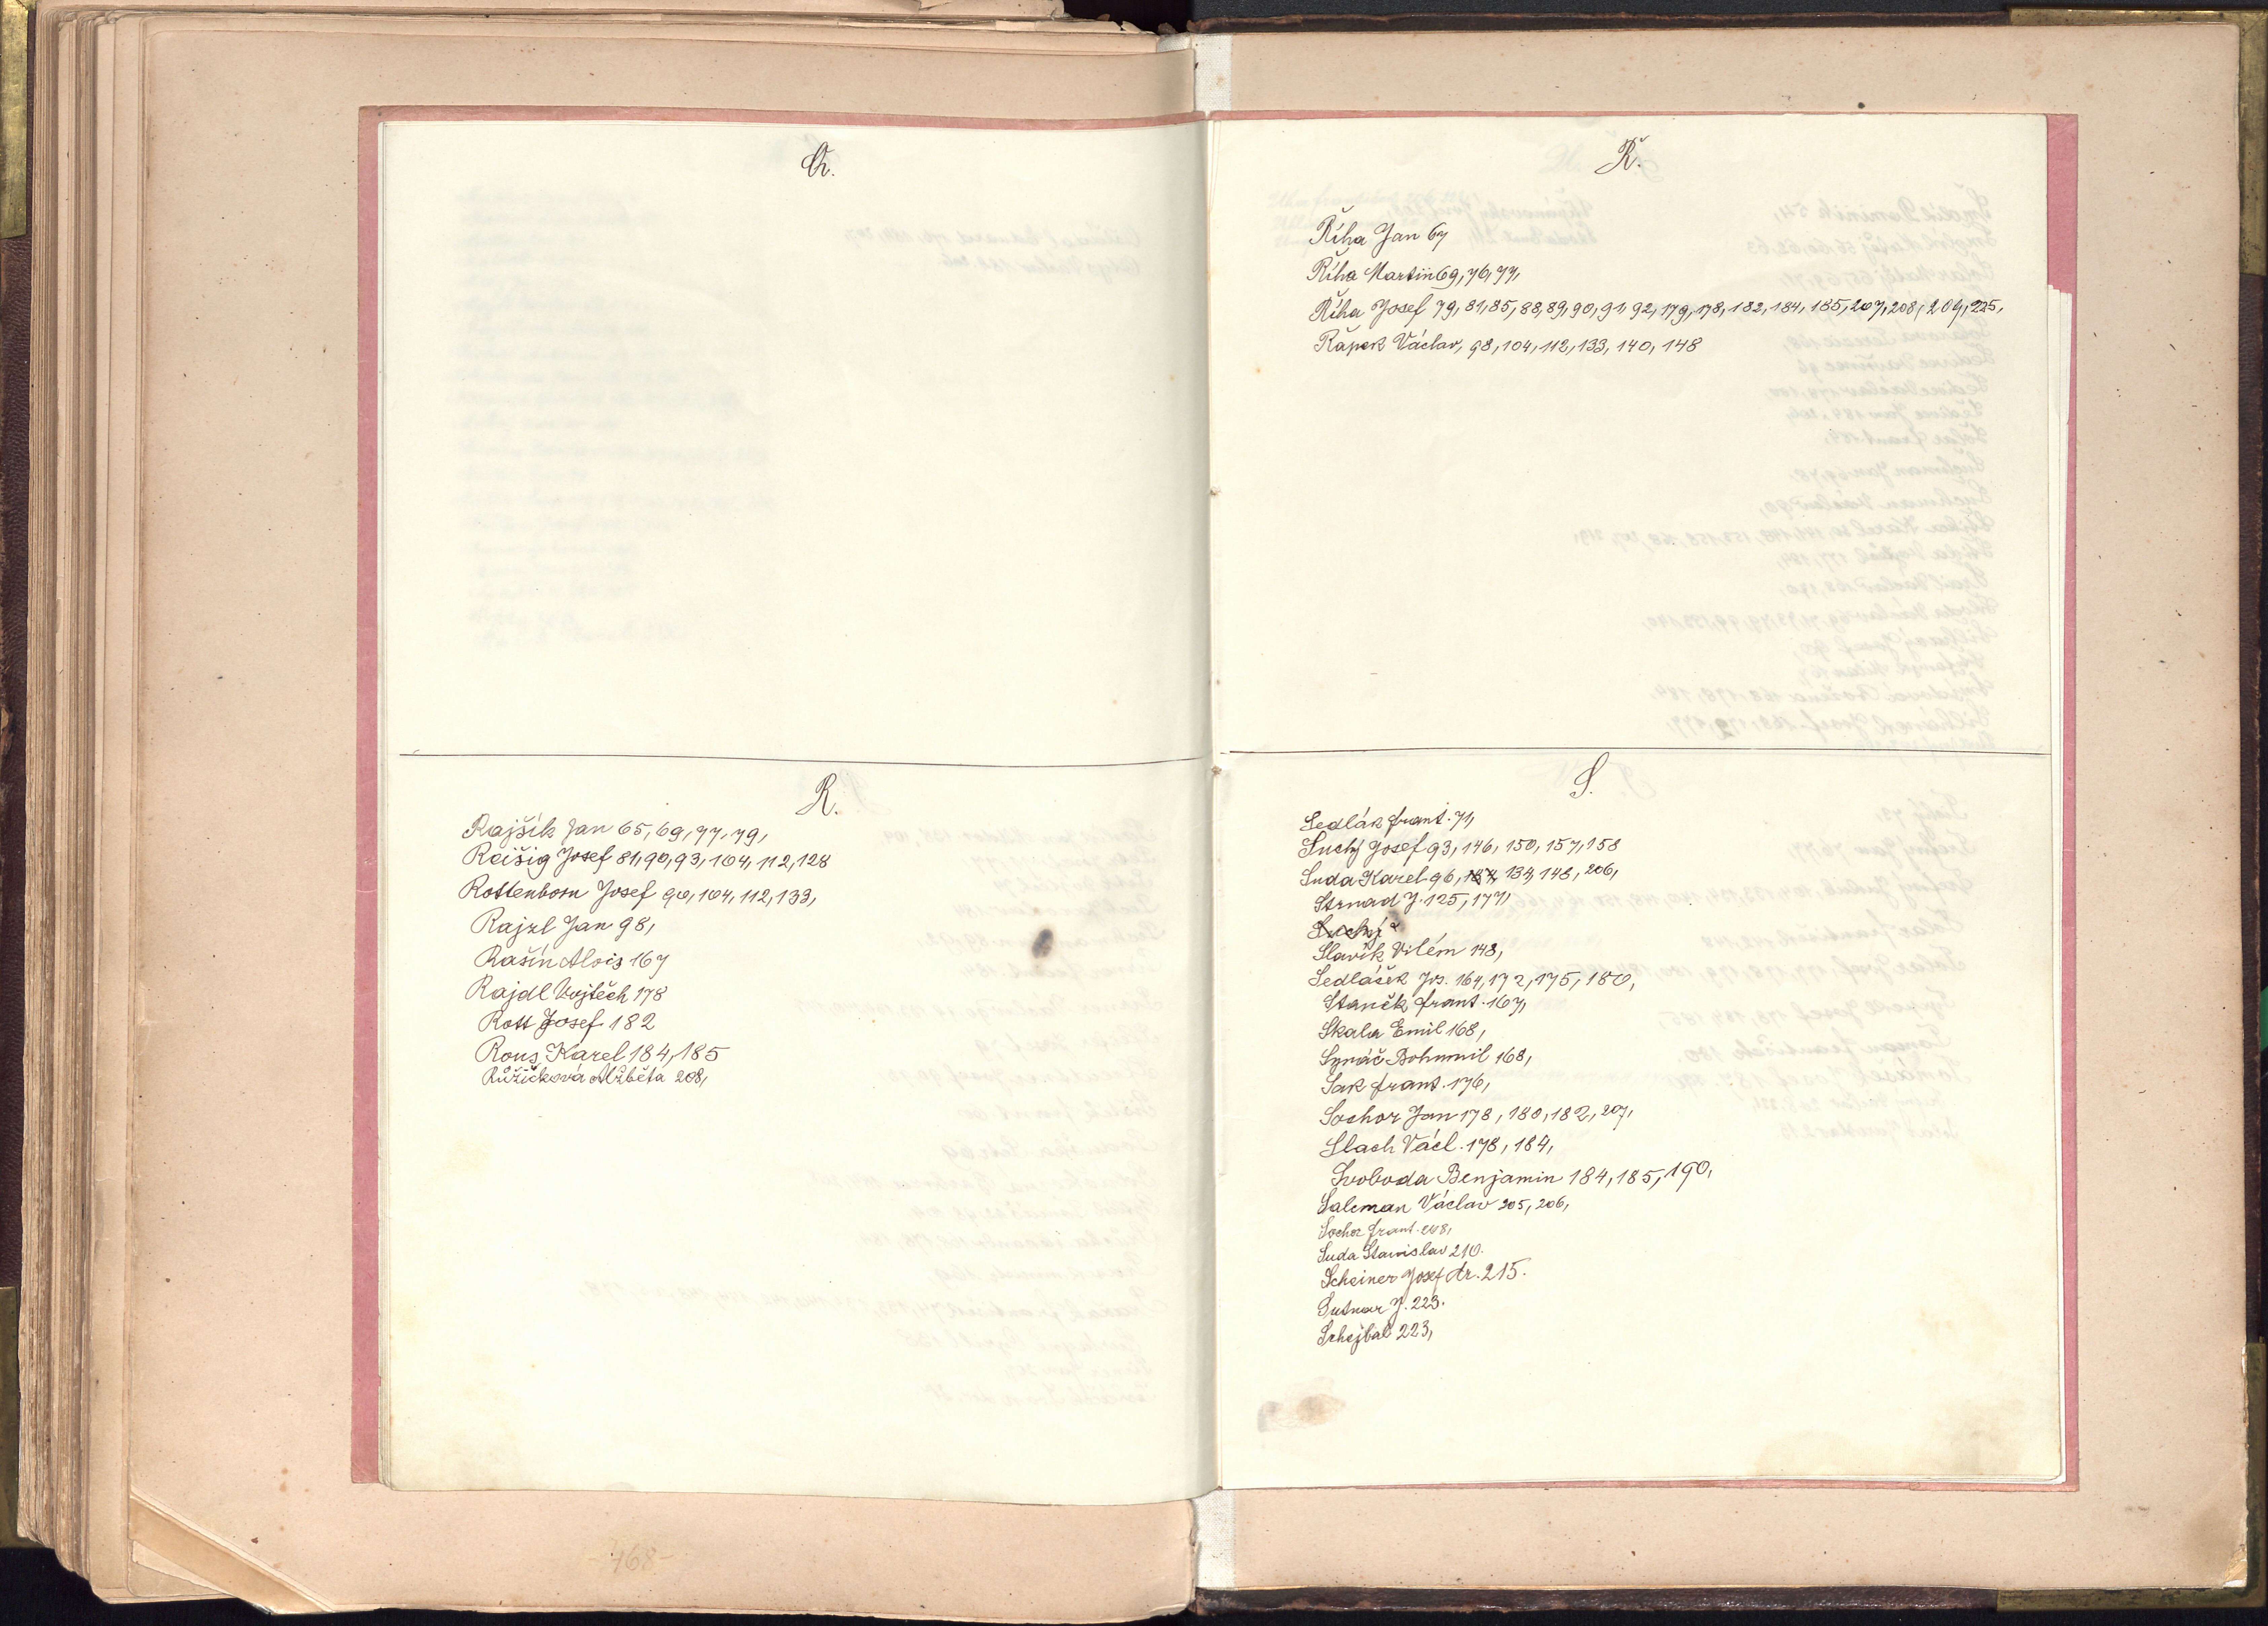 Q.
R.
Rajšík Jan 65, 69, 77, 79,
Raišig Josef 81, 90, 93, 104, 112, 128
Rottenborn Josef 90, 104, 112, 133,
Rajzl Jan 98,
Rašín Alois 167
Rajdl Vojtěch 178
Rott Josef 182
Rous Karel 184, 185
Růžičková Alžběta 208,
-468-
Ř.
Říha Jan 67
Říha Martin 69, 76, 77,
Říha Josef 79, 81, 85, 88, 89, 90, 91, 92, 179, 178, 182, 184, 185, 207, 208, 209, 225,
Řápek Václav, 98, 104, 112, 133, 140, 148
S.
Sedlák Frant. 71,
Suchý Josef 93, 146, 150, 157, 158
Suda Karel 96, 134, 148, 206,
Strnad J. 125, 177,
Suchý
Slavík Vilém 148,
Sedláček Jos. 164, 172, 175, 180,
Staněk Frant. 167,
Skala Emil 168,
Synáč Bohumil 168,
Sak Frant. 176,
Sochor Jan 178, 180, 182, 207,
Slach Václ. 178, 184,
Svoboda Benjamin 184, 185, 190,
Salcman Václav 205, 206,
Sochor Frant. 208,
Suda Stanislav 210.
Scheiner Josef dr. 215.
Sutnar J. 223.
Schejbal 223,